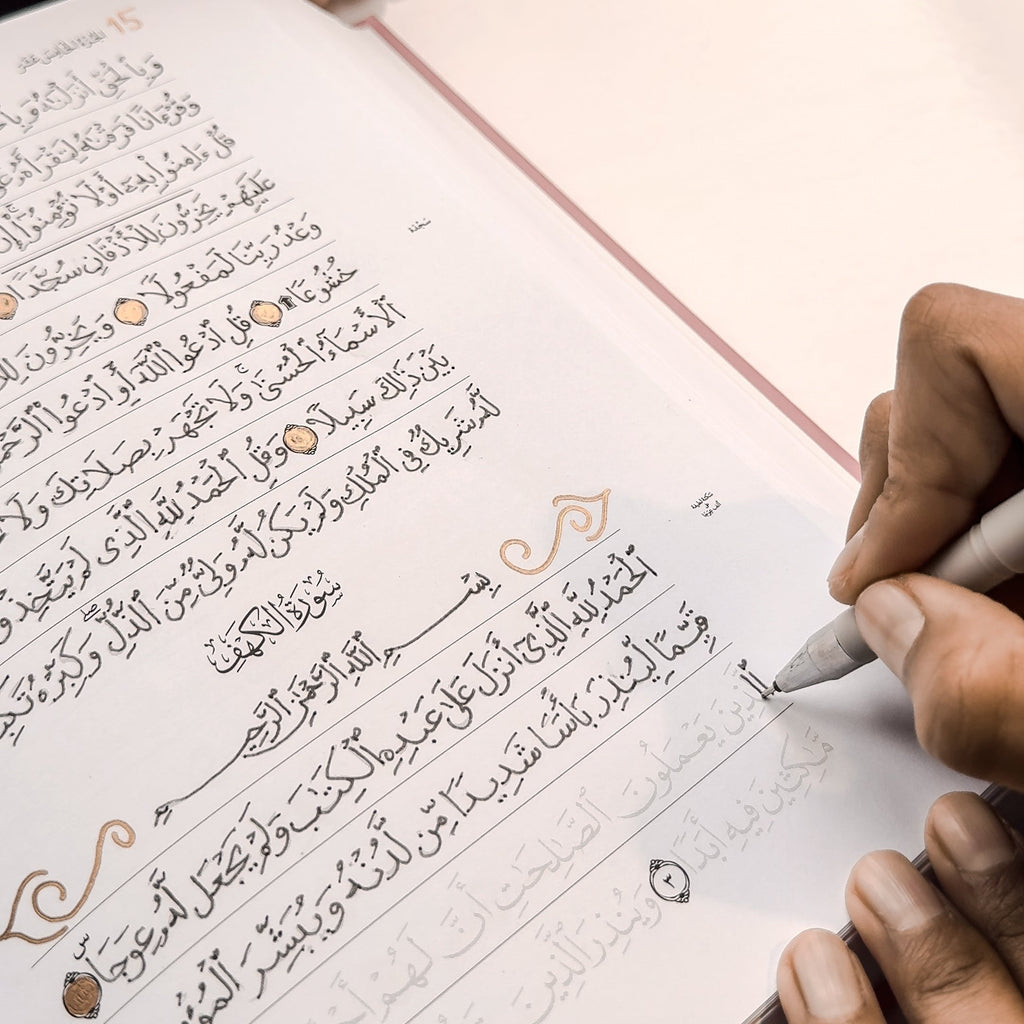 الجزء الخامس عشر 15
وَبِٱلْحَقِّ أَنزَلْنَٰهُ وَبِٱلْحَ
وَقُرْءَانًا فَرَقْنَٰهُ لِتَقْرَأَهُۥ عَ
قُلْ ءَامِنُوا۟ بِهِۦٓ أَوْ لَا تُؤْمِنُوٓا۟ إِنَّ
عَلَيْهِمْ يَخِرُّونَ لِلْأَذْقَانِ سُجَّدًا
سَجْدَة
وَعْدُ رَبِّنَا لَمَفْعُولًا وَيَخِرُّونَ لِلْأَ
خُشُوعًا ۩ قُلِ ٱدْعُوا۟ ٱللَّهَ أَوِ ٱدْعُوا۟ ٱلرَّحْمَ
ٱلْأَسْمَآءُ ٱلْحُسْنَىٰ ۚ وَلَا تَجْهَرْ بِصَلَاتِكَ وَلَا
بَيْنَ ذَٰلِكَ سَبِيلًا وَقُلِ ٱلْحَمْدُ لِلَّهِ ٱلَّذِى لَمْ يَتَّخِذْ وَ
لَّهُۥ شَرِيكٌ فِى ٱلْمُلْكِ وَلَمْ يَكُن لَّهُۥ وَلِىٌّ مِّنَ ٱلذُّلِّ ۖ وَكَبِّرْهُ تَكْبِ
سُورَةُ الكَهْفِ
بِسْمِ ٱللَّهِ ٱلرَّحْمَٰنِ ٱلرَّحِيمِ
ٱلْحَمْدُ لِلَّهِ ٱلَّذِىٓ أَنزَلَ عَلَىٰ عَبْدِهِ ٱلْكِتَٰبَ وَلَمْ يَجْعَل لَّهُۥ عِوَجَا ۜ
قَيِّمًا لِّيُنذِرَ بَأْسًا شَدِيدًا مِّن لَّدُنْهُ وَيُبَشِّرَ ٱلْمُؤْ
ٱلَّذِينَ يَعْمَلُونَ ٱلصَّٰلِحَٰتِ أَنَّ لَهُمْ أَجْ
مَّٰكِثِينَ فِيهِ أَبَدًا ٣ وَيُنذِرَ ٱلَّذِينَ